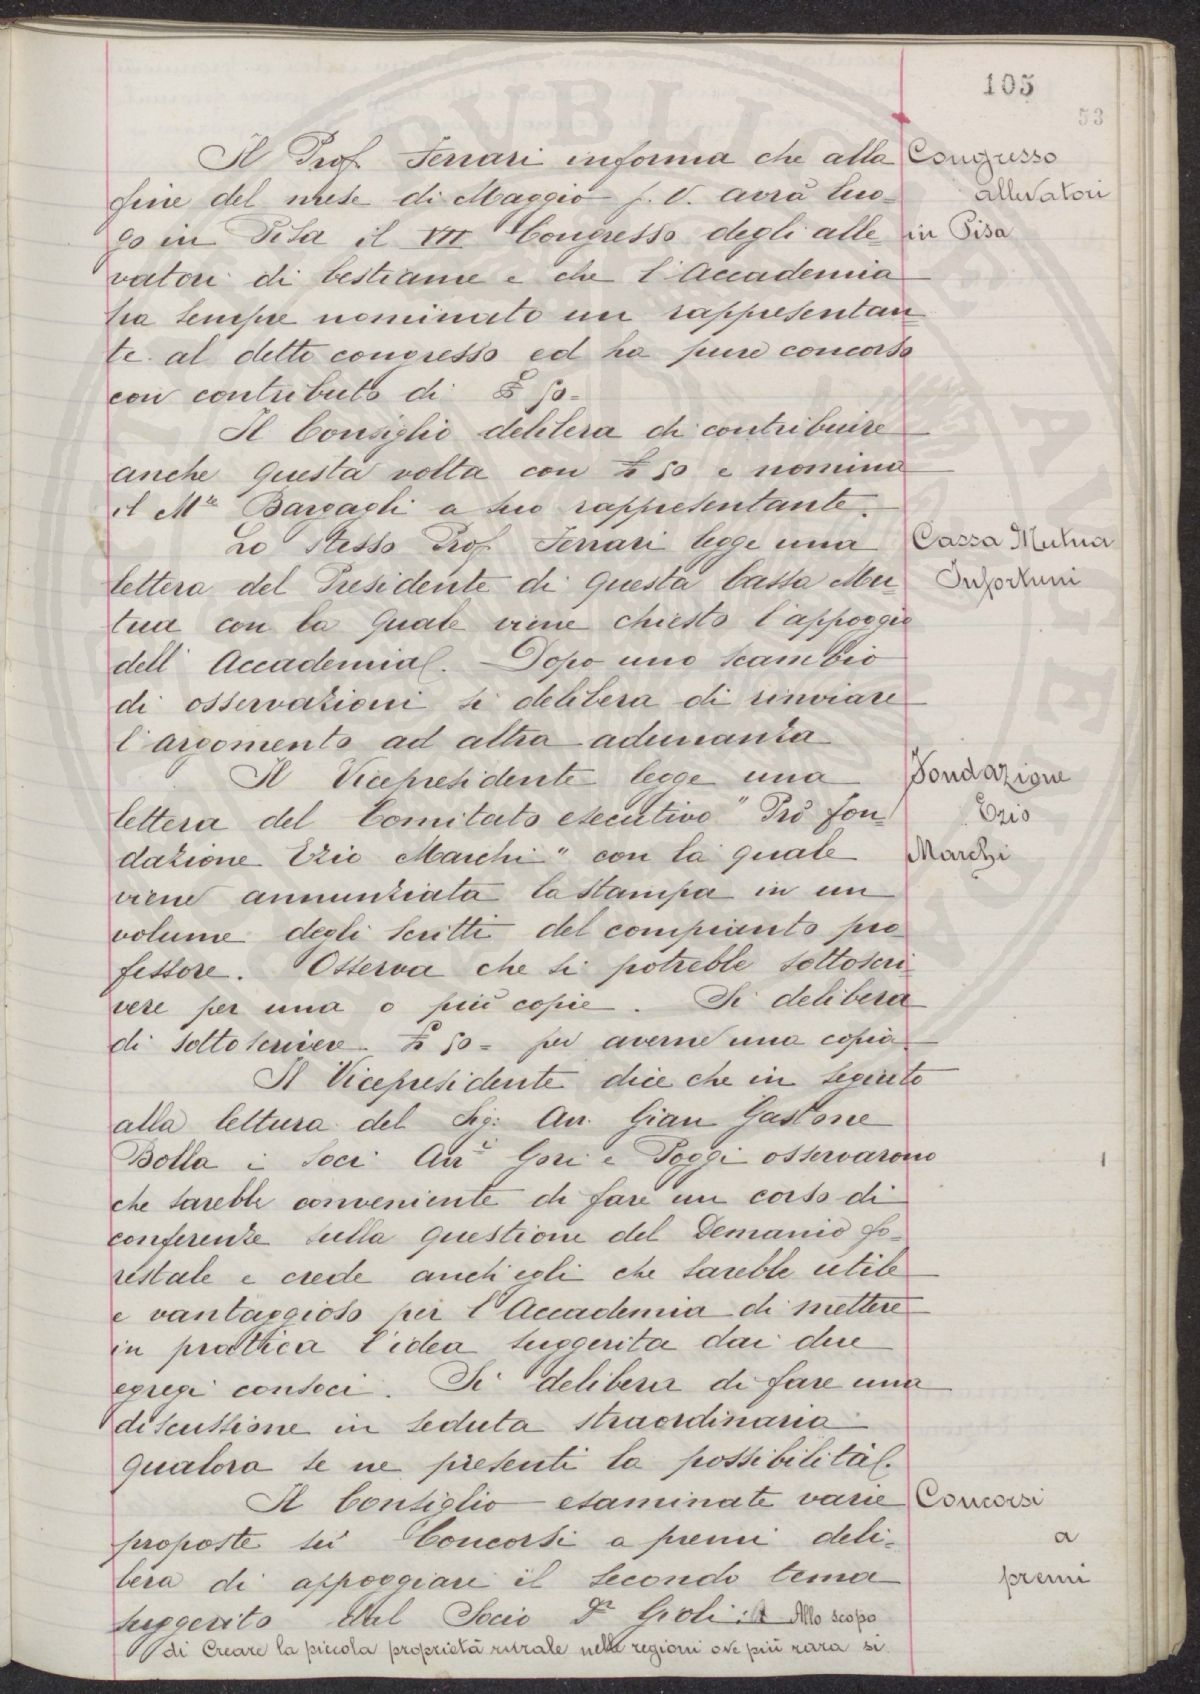 105
53
Il Prof. Ferrari informa che alla
fine del mese di Maggio p. v. avrà luo-
go in Pisa il VII Congresso degli alle
vatori di bestiame e che l'Accademia
ha sempre nominato un rappresentan-
te al detto congresso ed ha pure concorso
con contributo di £ 50=
Il Consiglio delibera di contribuire
anche questa volta con £ 50 e nomina
il M.se Bargagli a suo rappresentante.
Lo stesso Prof. Ferrari legge una
lettera del Presidente di questa Cassa Mu-
tua con la quale viene chiesto l'appoggio
dell'Accademia. Dopo uno scambio
di osservazioni si delibera di rinviare
l'argomento ad altra adunanza
Il Vicepresidente legge una
lettera del Comitato esecutivo "Prò fon-
dazione Ezio Marchi" con la quale
viene annunziata la stampa in un
volume degli scritti del compianto pro
fessore. Osserva che si potrebbe sottoscri-
vere per una o più copie. Si delibera
di sottoscrivere £ 50= per averne una copia.
Il Vicepresidente dice che in seguito
alla lettura del Sig. Avv. Gian Gastone
Bolla i Soci Avv.i Gori e Poggi osservarono
che sarebbe conveniente di fare un corso di
conferenze sulla questione del Demanio fo-
restale e crede anch'egli che sarebbe utile
e vantaggioso per l'Accademia di mettere
in pratica l'idea suggerita dai due
egregi consoci. Si delibera di fare una
discussione in seduta straordinaria
qualora se ne presenti la possibilità.
Il Consiglio esaminate varie
proposte su' Concorsi a premi deli-
bera di appoggiare il secondo tema
suggerito dal Socio D.r Gioli: Allo scopo
di Creare la piccola proprietà rurale nelle regioni ove più rara si
Congresso
allevatori
in Pisa
Cassa Mutua
Infortuni
Fondazione
Ezio
Marchi
Concorsi
a
premi